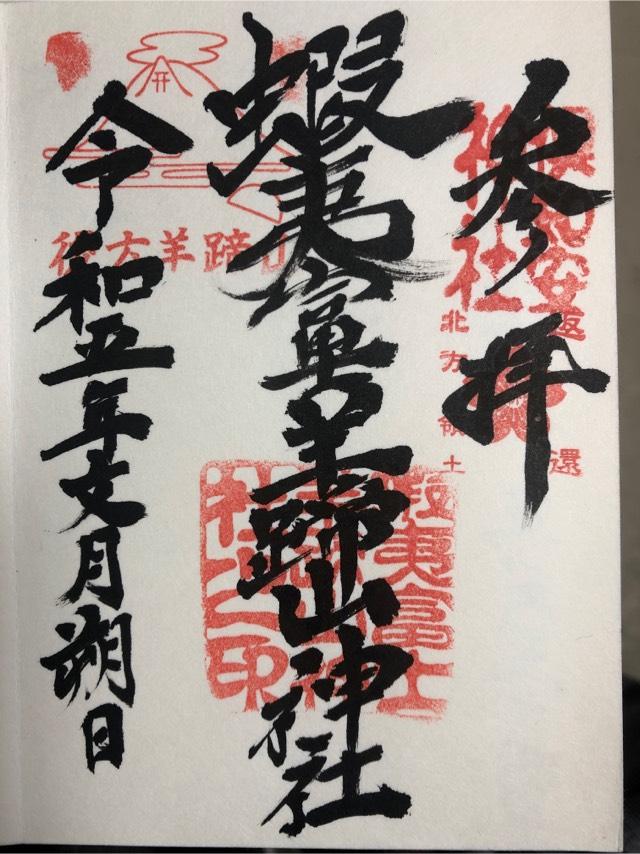 倶知安
神社
返還
北方領土
参拝
蝦夷富士羊蹄山神社
蝦夷富士
社之印
後方羊蹄山
令和五年文月朔日